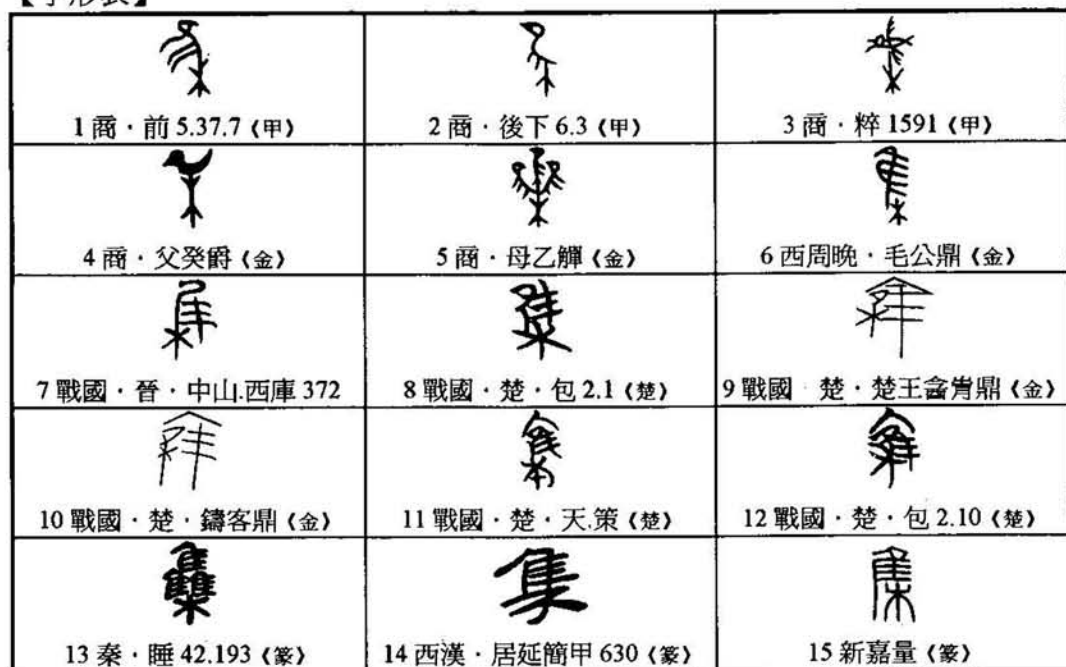 【字形表】
1 商·前 5.37.7《甲》
2 商·後下 6.3《甲》
3 商·粹 1591《甲》
4 商·父癸爵《金》
5 商·母乙觶《金》
6 西周晚·毛公鼎《金》
7 戰國·晉·中山.西庫 372
8 戰國·楚·包 2.1《楚》
9 戰國·楚·楚王酓肯鼎《金》
10 戰國·楚·鑄客鼎《金》
11 戰國·楚·天.策《楚》
12 戰國·楚·包 2.10《楚》
13 秦·睡 42.193《篆》
14 西漢·居延簡甲 630《篆》
15 新嘉量《篆》